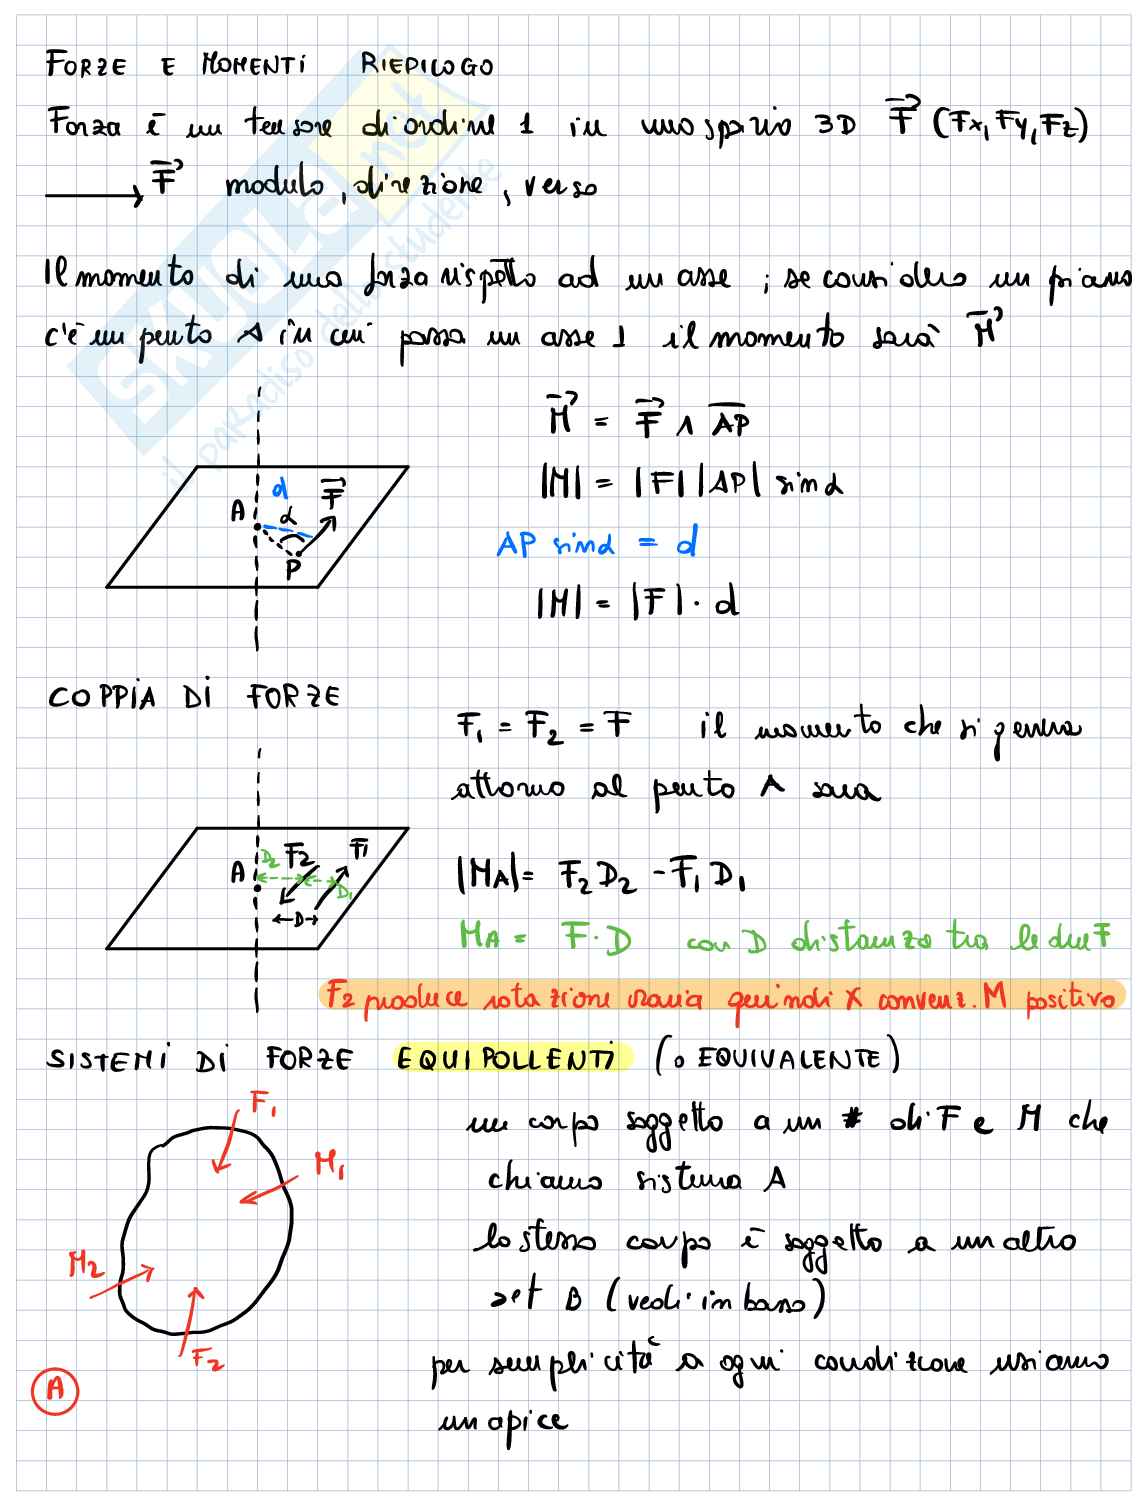 FORZE E MOMENTI RIEPILOGO
Forza è un tensore di ordine 1 in uno spazio 3D F (Fx, Fy, Fz)
F modulo, direzione, verso
Il momento di una forza rispetto ad un asse ; se considero un piano
c'è un punto A in cui passa un asse 1 il momento sarà M
M = F ∧ AP
|M| = |F| |AP| sin α
AP sin α = d
|M| = |F| · d
d
A α F
P
COPPIA DI FORZE
F₁ = F₂ = F il momento che si genera
attorno al punto A sarà
D₂ F2 F1
A D₁
D
|MA| = F₂ D₂ - F₁ D₁
MA = F · D con D distanza tra le due F
F₂ produce rotazione oraria quindi x convenz. M positivo
SISTEMI DI FORZE EQUIPOLLENTI (o EQUIVALENTE)
F₁
M₁
M₂
F₂
A
un corpo soggetto a un # di F e M che
chiamo sistema A
lo stesso corpo è soggetto a un altro
set B (vedi in basso)
per semplicità a ogni condizione usiamo
un apice
SKUOLA.net
il paradiso dello studente